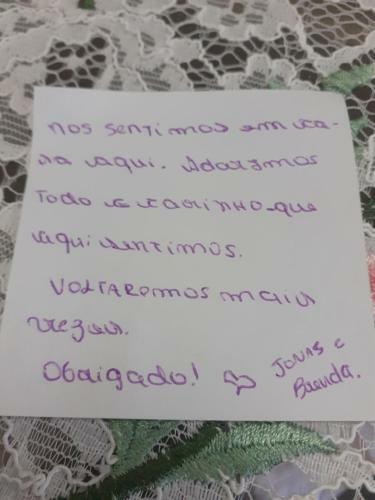 nos sentimos em ca-
sa aqui. Adoramos
Todo o carinho que
aqui sentimos.
Voltaremos mais
vezes.
Obrigado! Jonas e
Brenda.